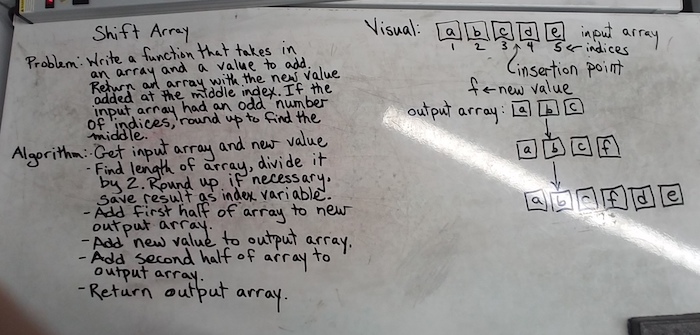 Shift Array
Problem: Write a function that takes in
an array and a value to add.
Return an array with the new value
added at the middle index. If the
input array had an odd number
of indices, round up to find the
middle.
Algorithm: - Get input array and new value
- Find length of array, divide it
by 2. Round up if necessary.
Save result as index variable.
- Add first half of array to new
output array.
- Add new value to output array.
- Add second half of array to
output array.
- Return output array.
Visual: a b c d e input array
1 2 3 4 5 ← indices
insertion point
f ← new value
output array: a b c
a b c f
a b c f d e